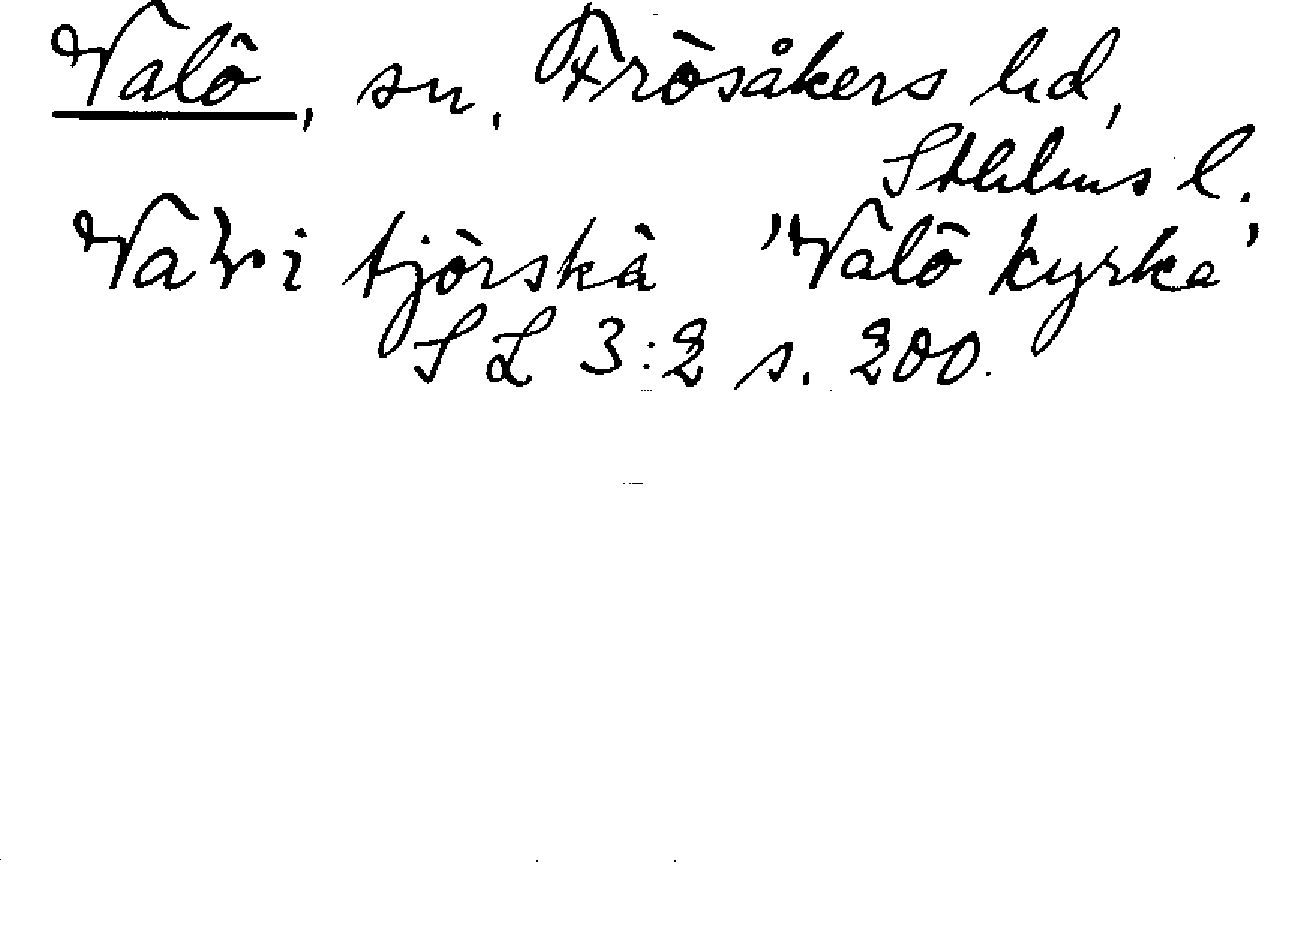 Valö, sn, Frösåkers hd,
Sthlms l.
i tjörskä 'Valö kyrka'
SL 3:2 s. 200.